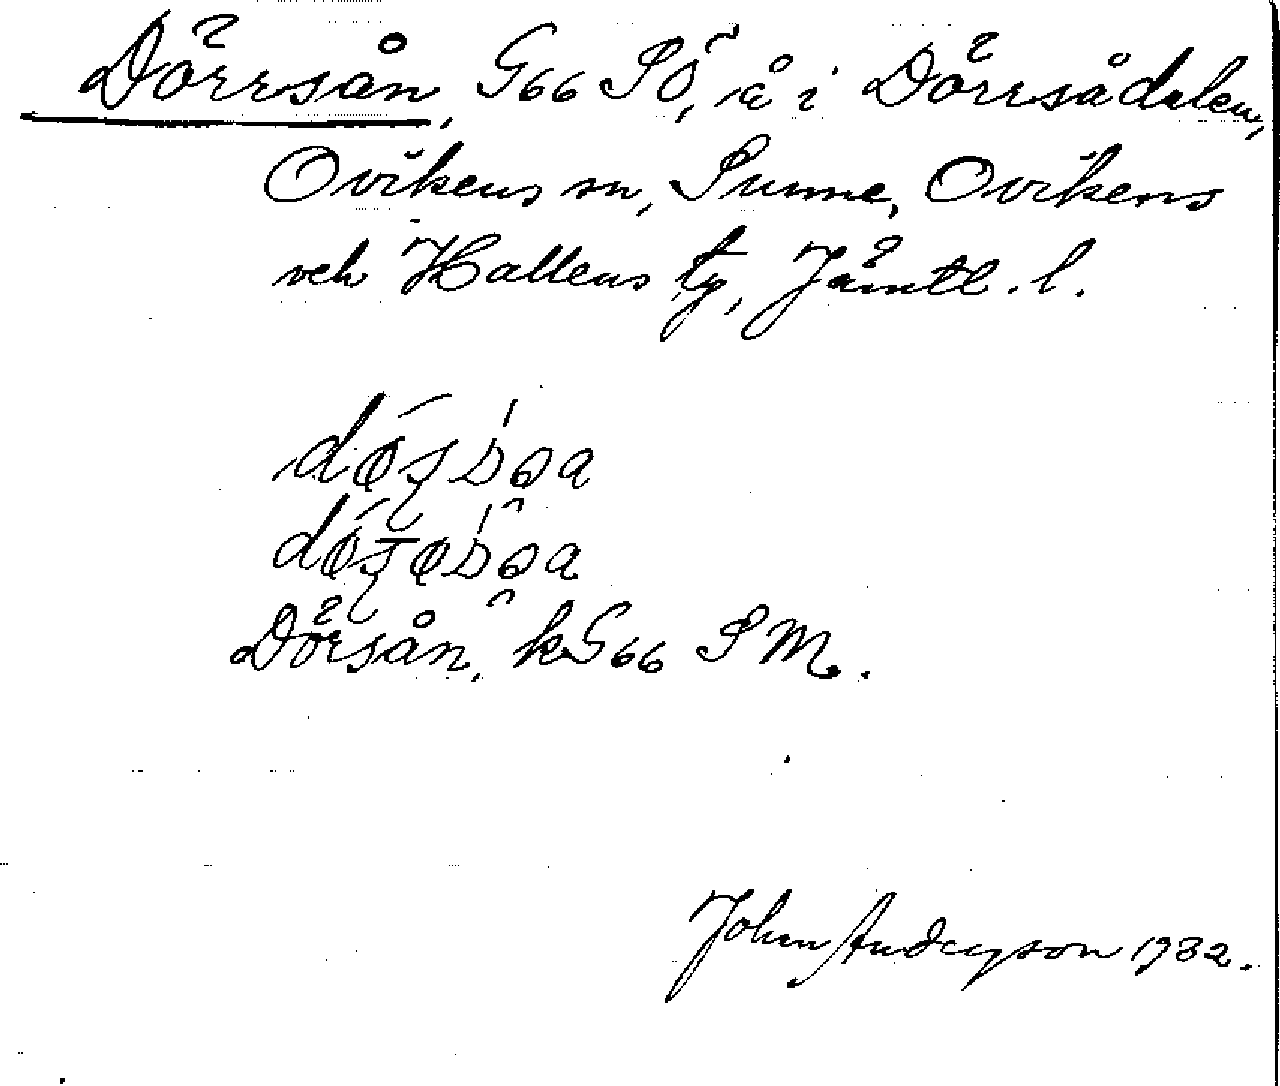 Dörrsån, G66 SÖ, å i Dörrsådalen,
Ovikens sn, Sunne, Ovikens
och Hallens tg, Jämtl. l.
Dörsån, kG66 SM.
John Anderson 1932.